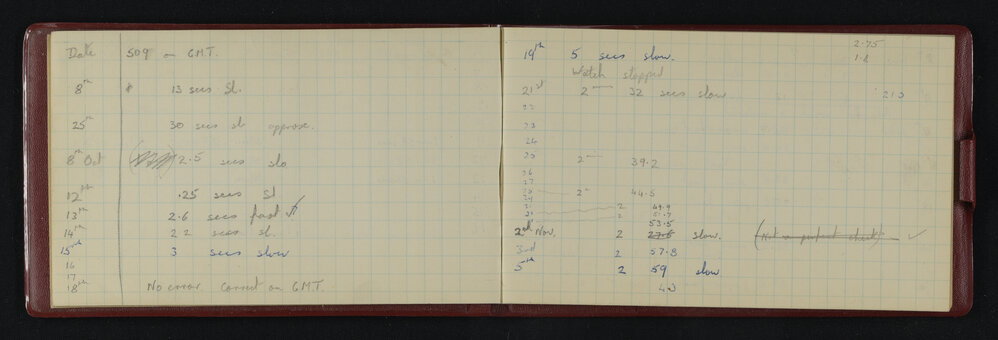 Date 509 on G.M.T.
8th 13 secs sl.
25th 30 secs sl approx.
8th Oct 2.5 secs slo
12th .25 secs sl
13th 2.6 secs fast ✓
14th 2 2 secs sl.
15th 3 secs slow
16
17
18th No error Correct on G.M.T.
2.75
1.4
19th 5 secs slow.
Watch stopped
21st 2 32 secs slow 21.3
22
23
24
25 2 39.2
26
27
28 2 44.5
29 2 49.9
2 51.7
53.5
2nd Nov. 2 27.6 slow. (Not a perfect check) ✓
3rd 2 57.8
5th 2 59 slow